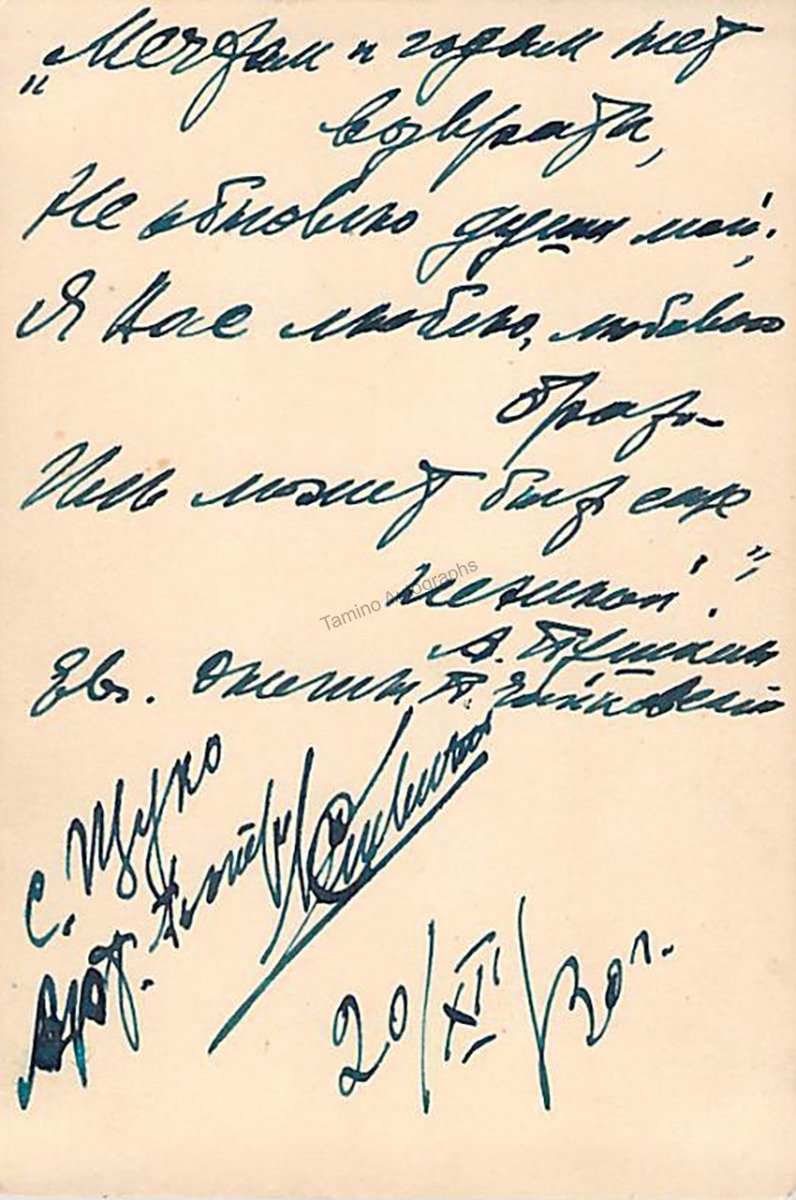 „Мечтам и годам нет
возврата,
Не обновлю души моей;
Я Вас люблю, любовью
брата
Иль может быть еще
нежней!"
А. Пушкин
Евг. Онегин П. Чайковский
С. Щуко
20/XII/30 г.
Tamino Autographs